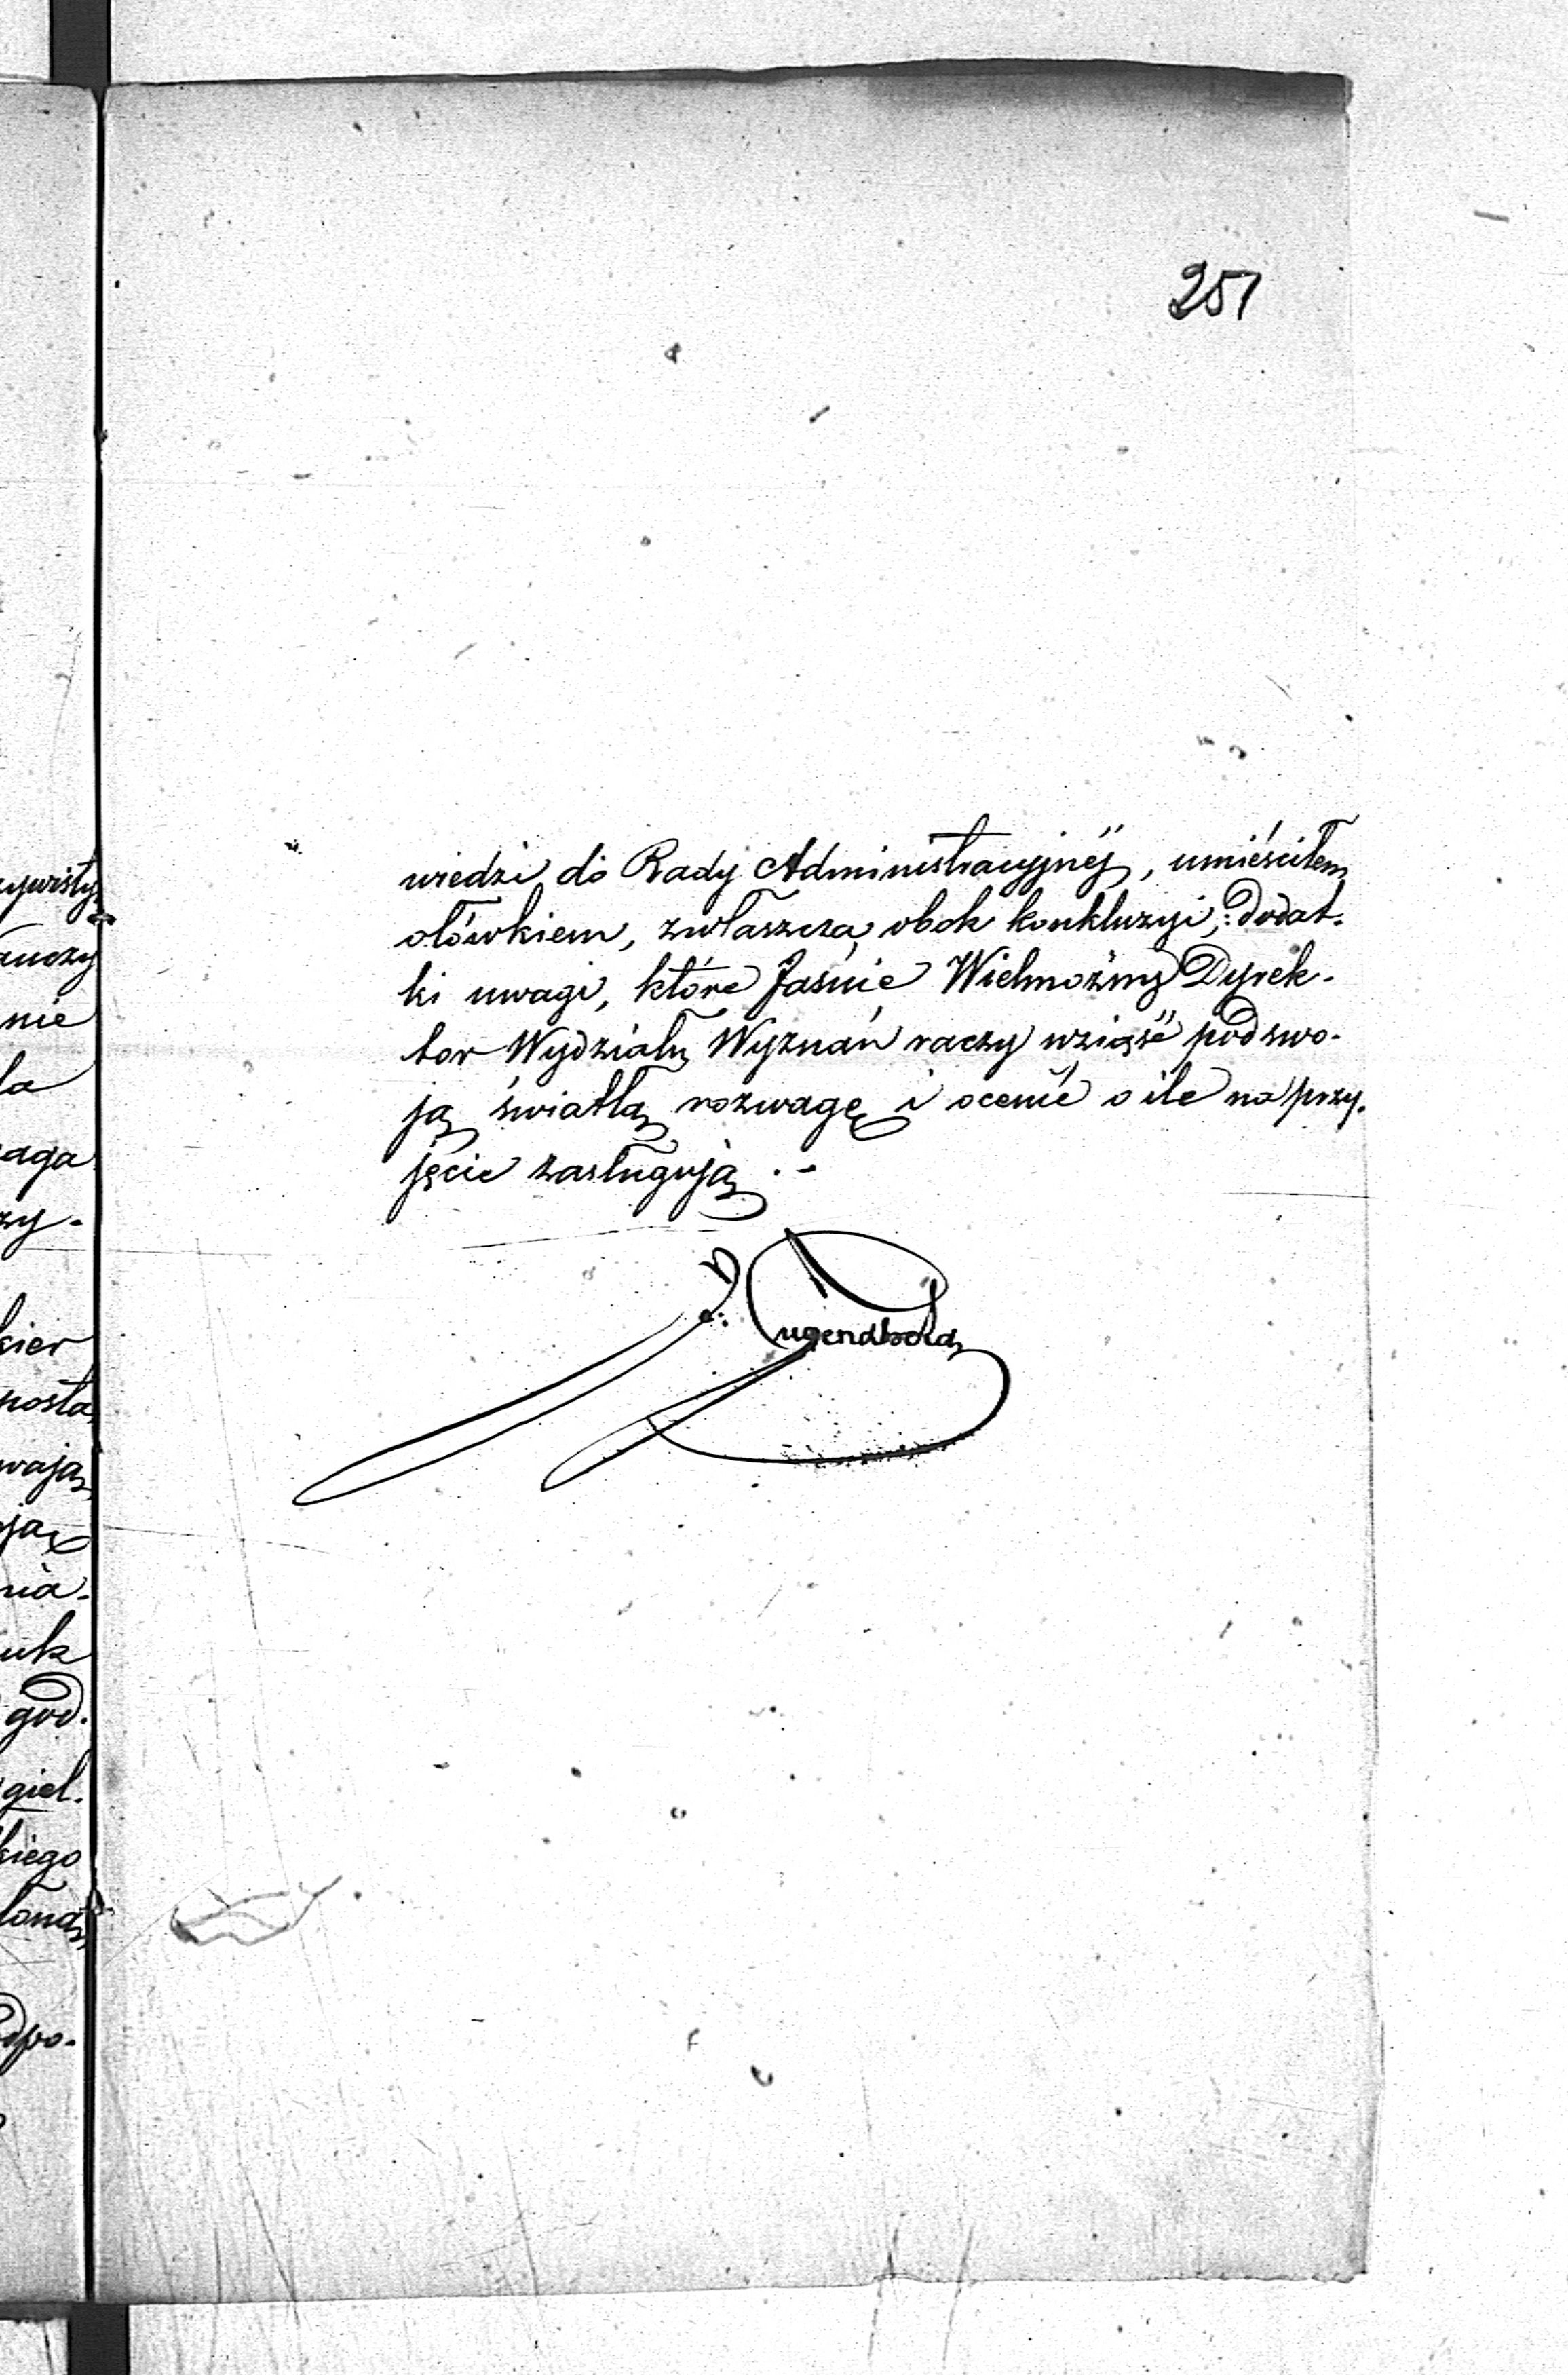 251
wiedzi do Rady Administracyjnéj, umieściłem
ołówkiem, zwłaszcza obok konkluzyi, dodat-
ki uwagi, które Jaśnie Wielmożny Dyrek-
tor Wydziału Wyznań raczy wziąść pod swo-
ją światłą rozwagę i ocenić o ile na przy-
jęcie zasługują.-
J. Tugendhold
zywisty
nie
la
zy-
kier
wają
ją
nia-
uk
god-
giel-
kiego
łoną
odpo-